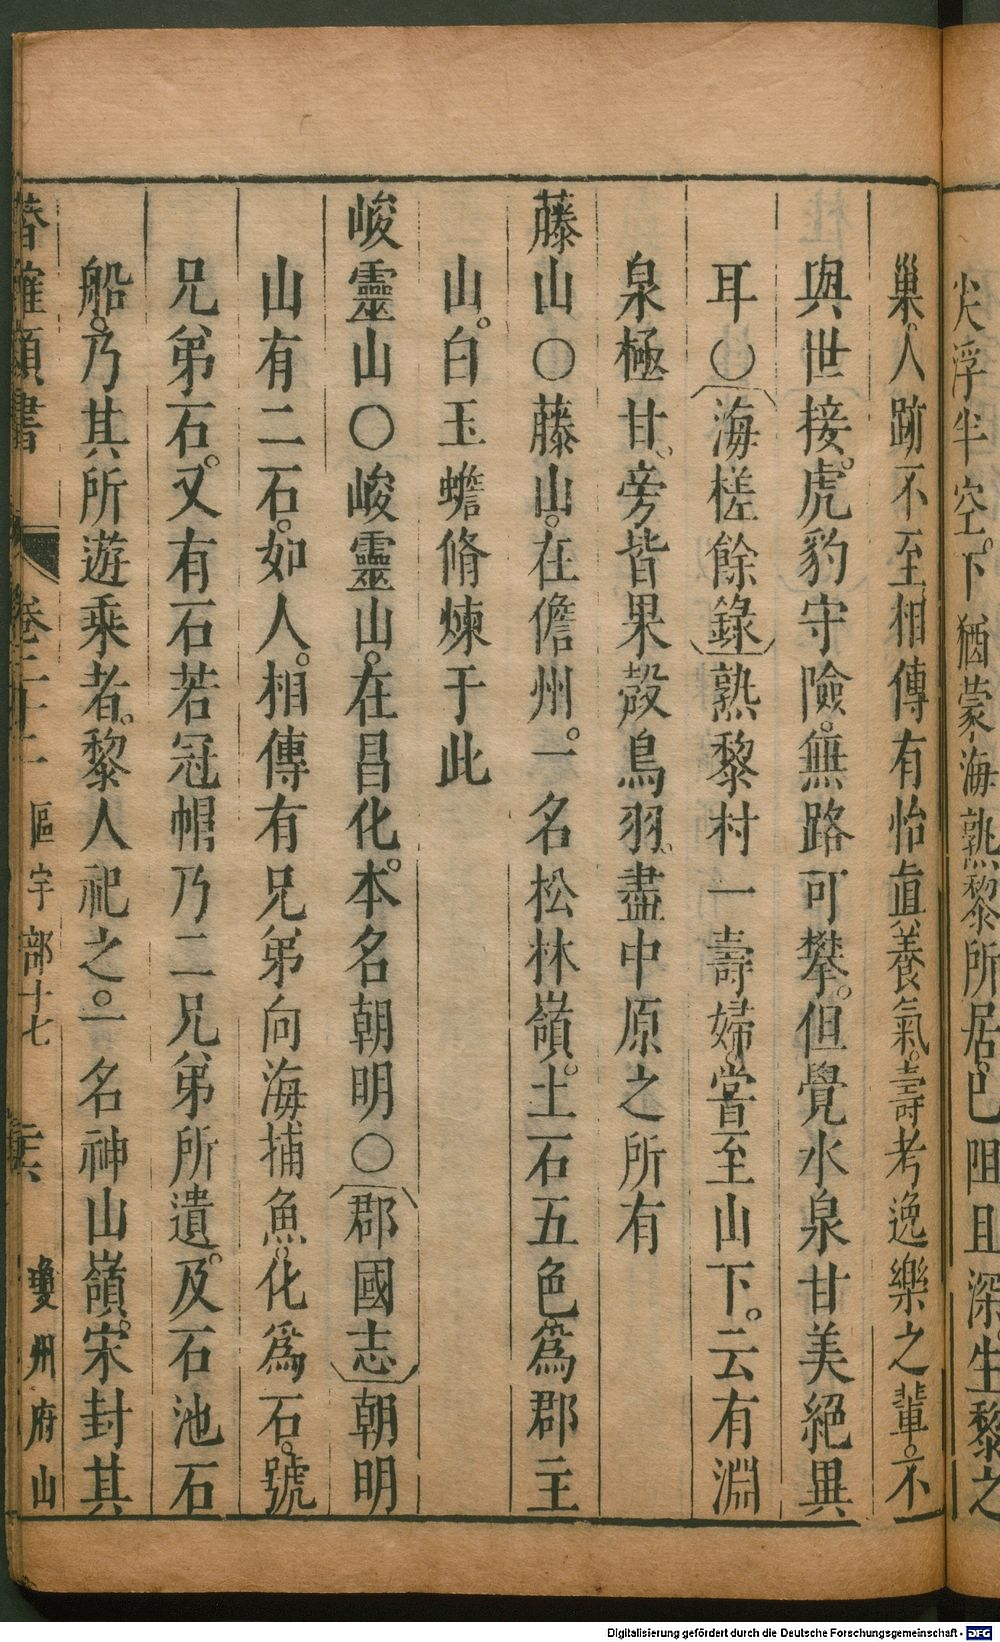 尖浮半空。下猶蒙海熟黎所居。已阻且深生黎之
巢。人跡不至相傳有怡眞養氣。壽考逸樂之輩。不
與世接。虎豹守險。無路可攀。但覺水泉甘美絕異
耳○海槎餘錄熟黎村一壽婦。嘗至山下。云有淵
泉極甘。旁皆果殼鳥羽。盡中原之所有
藤山○藤山。在儋州。一名松林嶺。土石五色。爲郡主
山。白玉蟾脩煉于此
峻靈山○峻靈山。在昌化。本名朝明○郡國志朝明
山有二石。如人。相傳有兄弟向海捕魚。化爲石。號
兄弟石。又有石若冠帽乃二兄弟所遺。及石池石
船。乃其所遊乘者。黎人祀之。一名神山嶺。宋封其
潛確類書 卷三十二 區宇部十七 瓊州府山
Digitalisierung gefördert durch die Deutsche Forschungsgemeinschaft - DFG